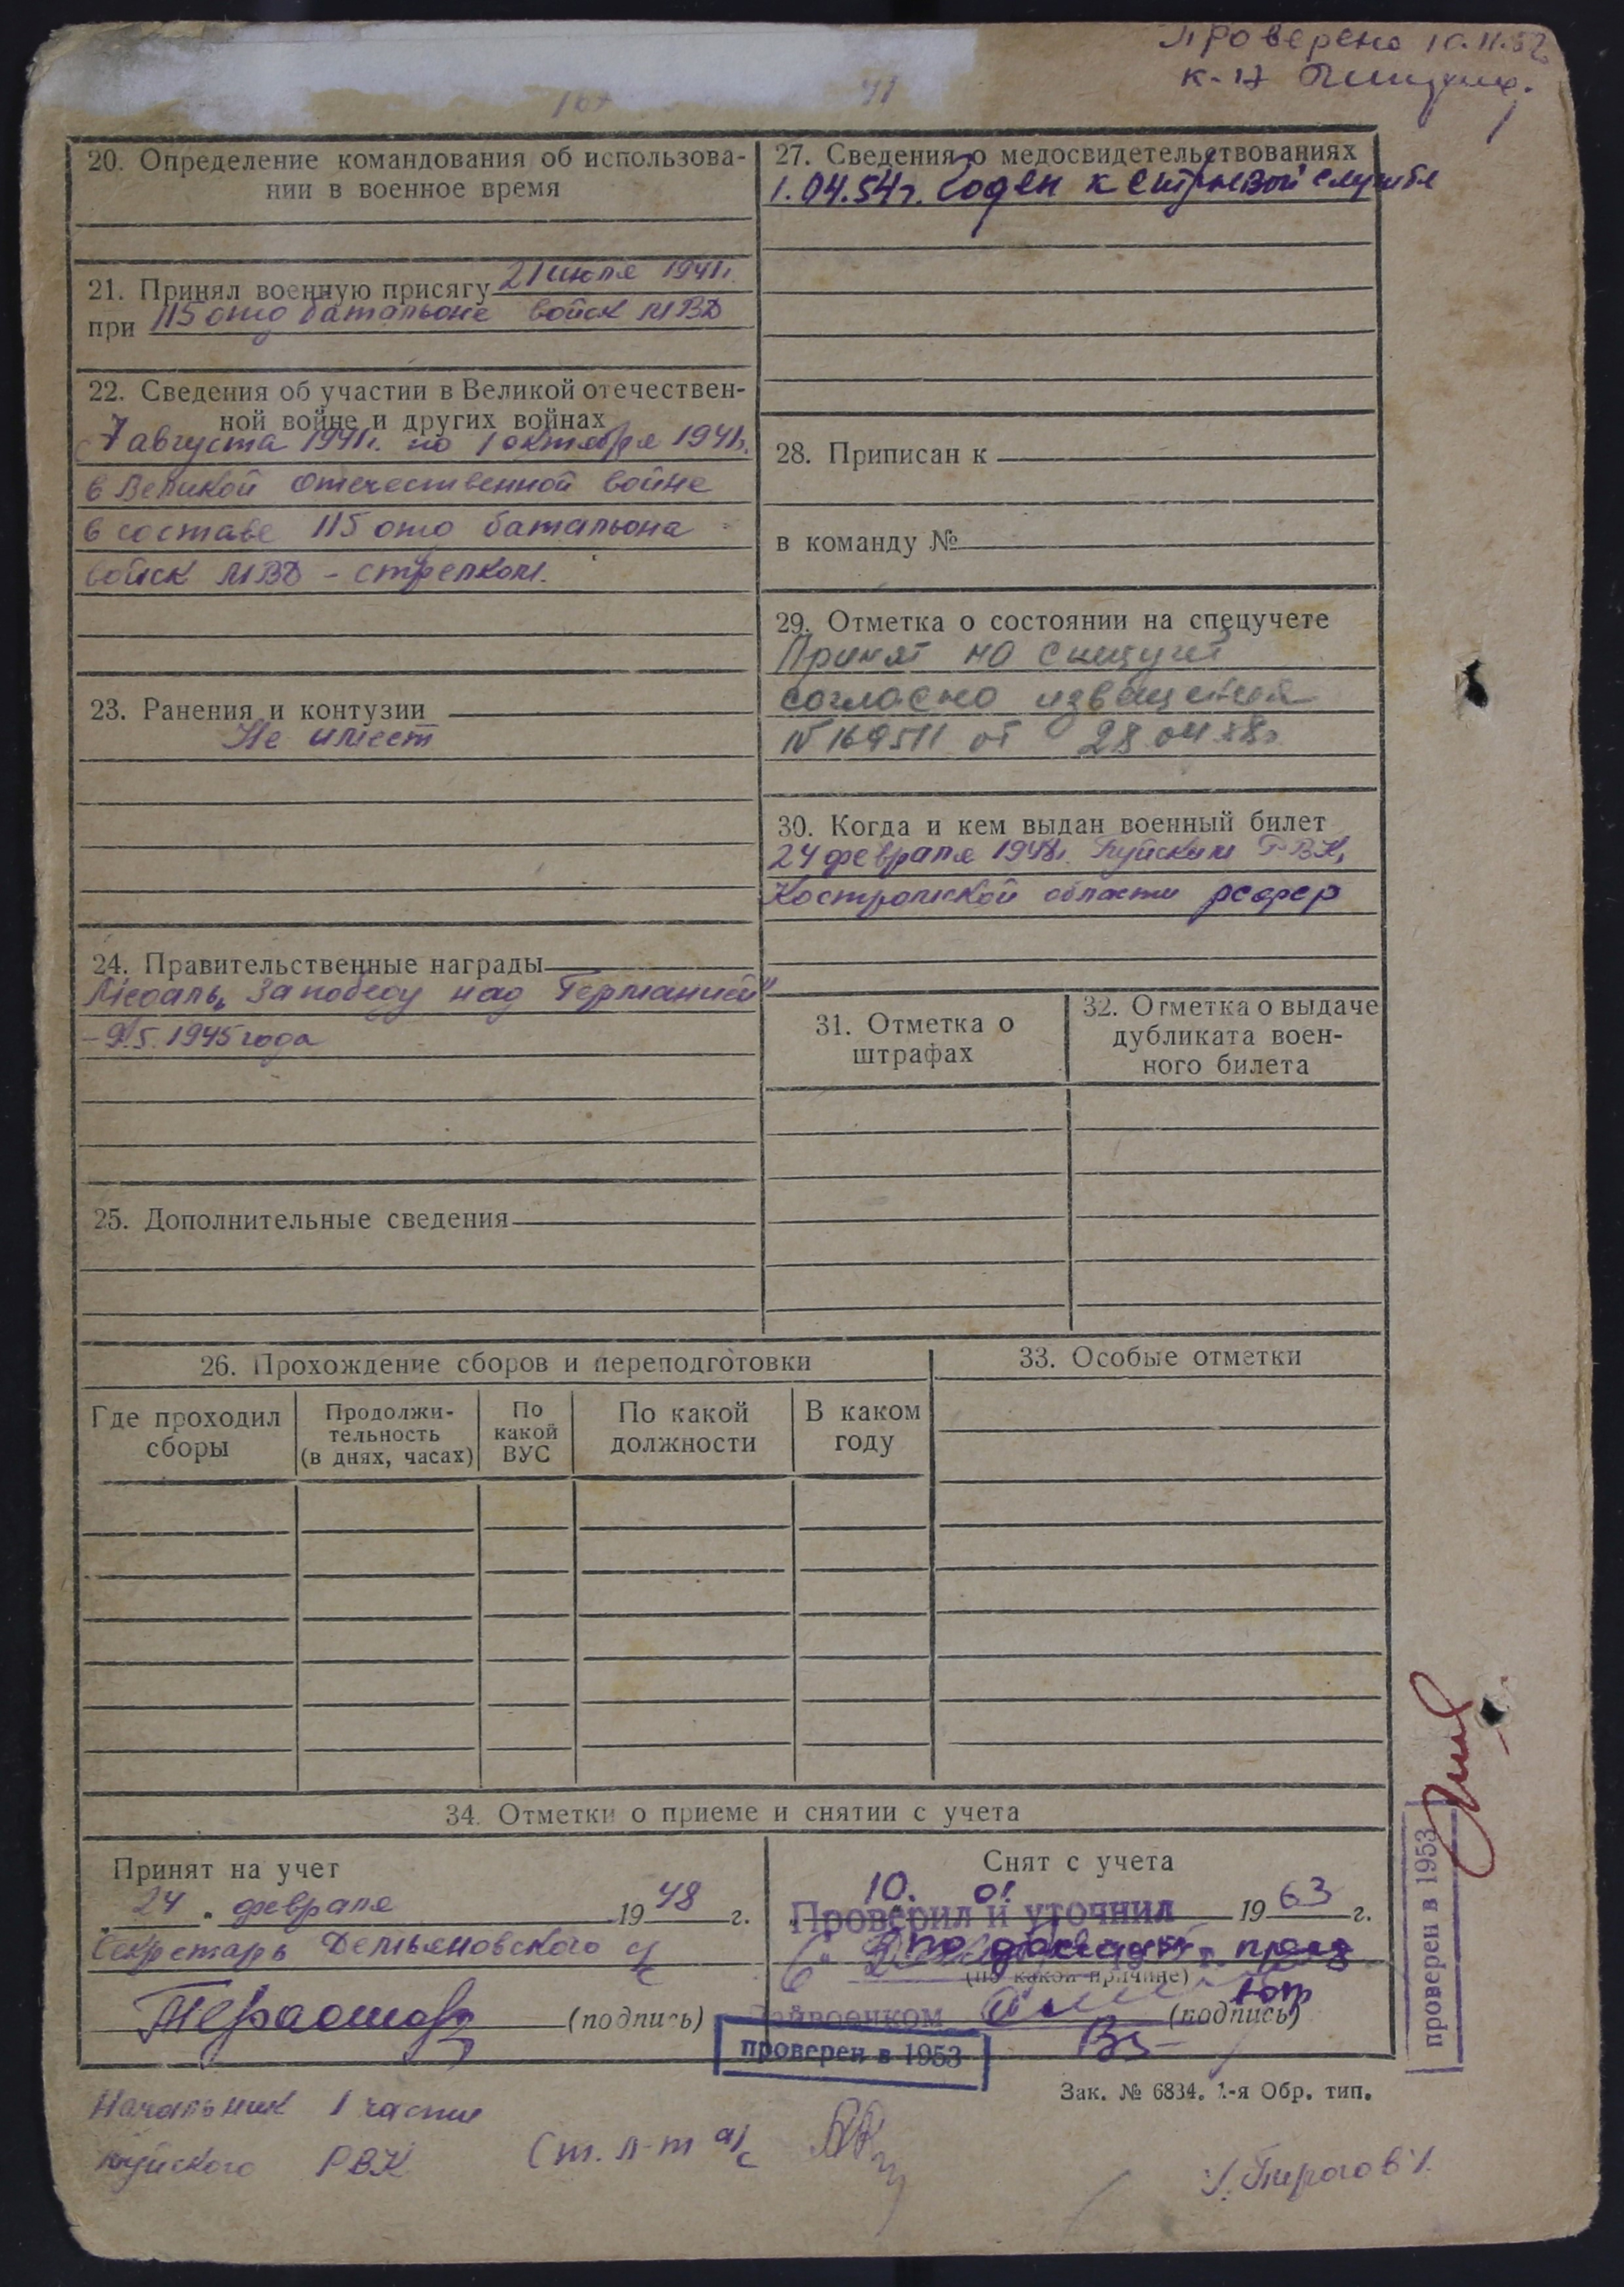 Проверено 10.11.52
20. Определение командования об использова-
нии в военное время
21. Принял военную присягу 21 июля 1941г.
при 115 ото батальоне войск МВД
22. Сведения об участии в Великой отечествен-
ной войне и других войнах
с 7 августа 1941г. по 1 октября 1941г.
в Великой Отечественной войне
в составе 115 ото батальона
войск МВД - стрелком.
23. Ранения и контузии
Не имеет
24. Правительственные награды
Медаль „За победу над Германией"
- 9.5.1945 года
25. Дополнительные сведения
27. Сведения о медосвидетельствованиях
1.04.54г. Годен к строевой службе
28. Приписан к
в команду №
29. Отметка о состоянии на спецучете
Принят на спецучет
согласно извещения
№ 169511 от 28 04
30. Когда и кем выдан военный билет
24 февраля 1948г. РВК,
Костромской области РСФСР
31. Отметка о
штрафах
32. Отметка о выдаче
дубликата воен-
ного билета
26. Прохождение сборов и переподготовки
Где проходил
сборы
Продолжи-
тельность
(в днях, часах)
По
какой
ВУС
По какой
должности
В каком
году
33. Особые отметки
34. Отметки о приеме и снятии с учета
Принят на учет
24 „ февраля 1948 г.
Секретарь Демьяновского
(подпись)
Снят с учета
10. 01 1963 г.
Проверил и уточнил
(по какой причине)
Райвоенком (подпись)
проверен в 1953
проверен в 1953
Зак. № 6834. 1-я Обр. тип.
Начальник 1 части
РВК Ст. л-т а/с
/Пирогов/.